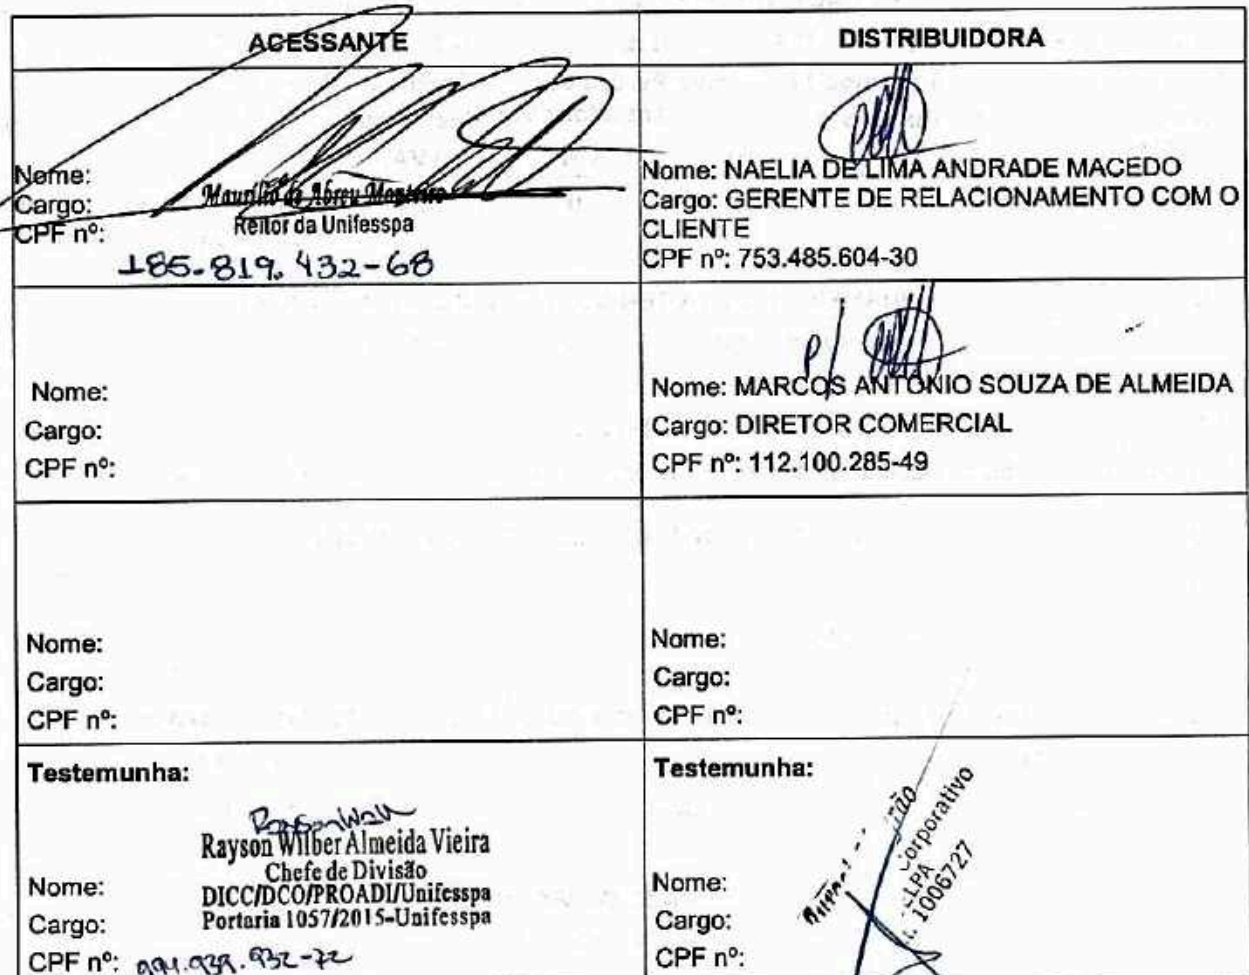 ACESSANTE
Nome:
Cargo:
CPF nº:
Maurílio de Abreu Monteiro
Reitor da Unifesspa
185.819.432-68
DISTRIBUIDORA
Nome: NAELIA DE LIMA ANDRADE MACEDO
Cargo: GERENTE DE RELACIONAMENTO COM O
CLIENTE
CPF nº: 753.485.604-30
Nome:
Cargo:
CPF nº:
p/
Nome: MARCOS ANTONIO SOUZA DE ALMEIDA
Cargo: DIRETOR COMERCIAL
CPF nº: 112.100.285-49
Nome:
Cargo:
CPF nº:
Nome:
Cargo:
CPF nº:
Testemunha:
Rayson Wilber Almeida Vieira
Chefe de Divisão
DICC/DCO/PROADI/Unifesspa
Portaria 1057/2015-Unifesspa
Nome:
Cargo:
CPF nº: 994.939.932-72
Testemunha:
Corporativo
1006727
Nome:
Cargo:
CPF nº: